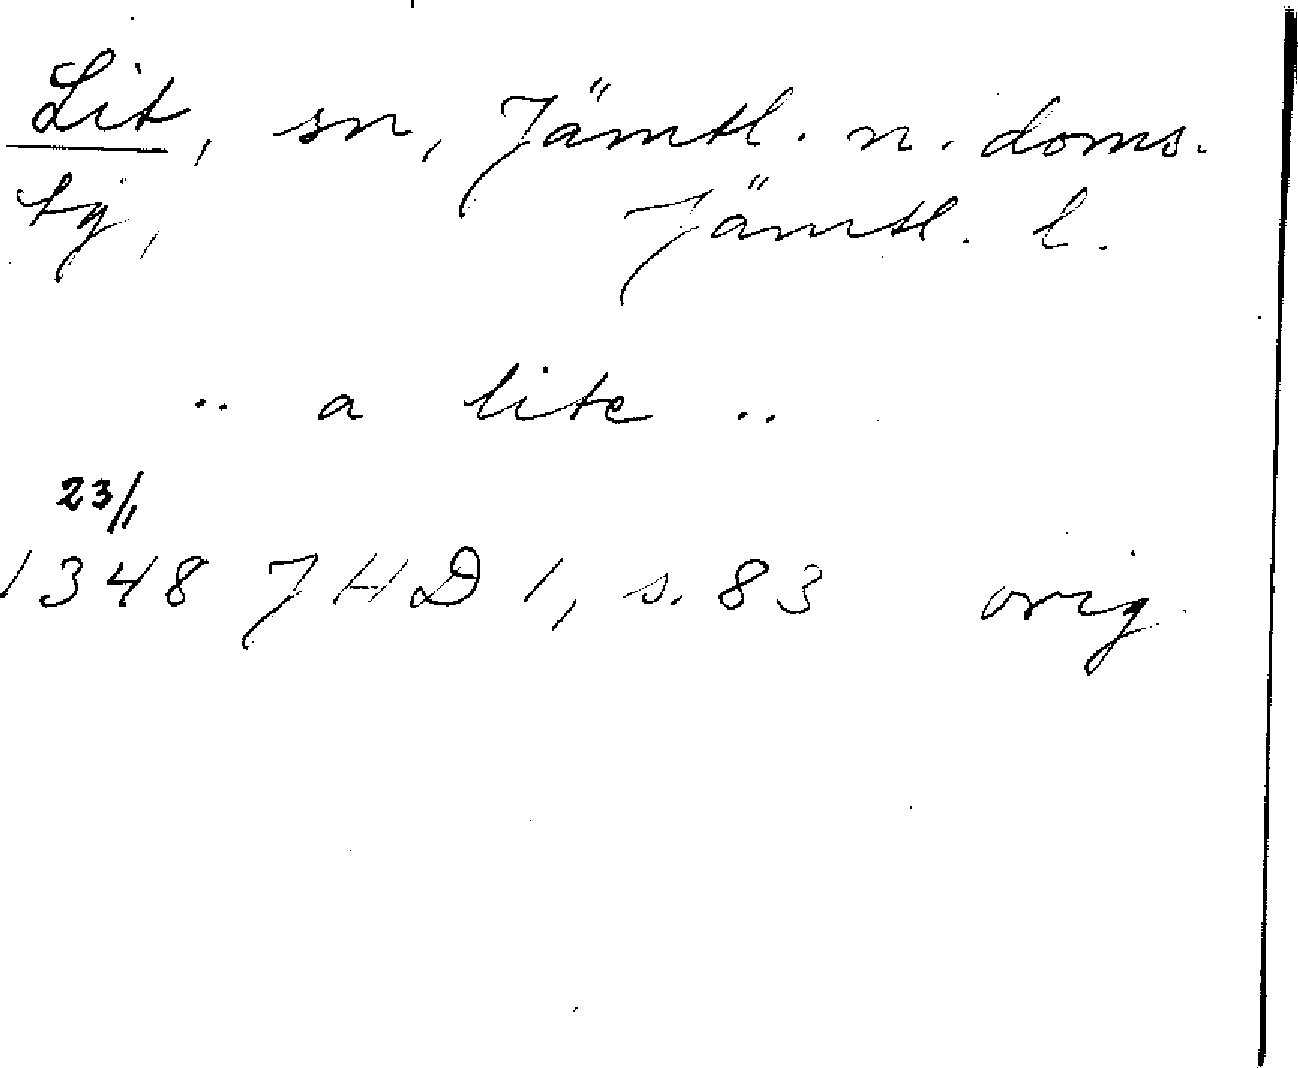 Lit, sn, Jämtl. n. doms.
tg, Jämtl. l.
.. a lite ..
23/11
1348 JHD 1, s. 83 orig.